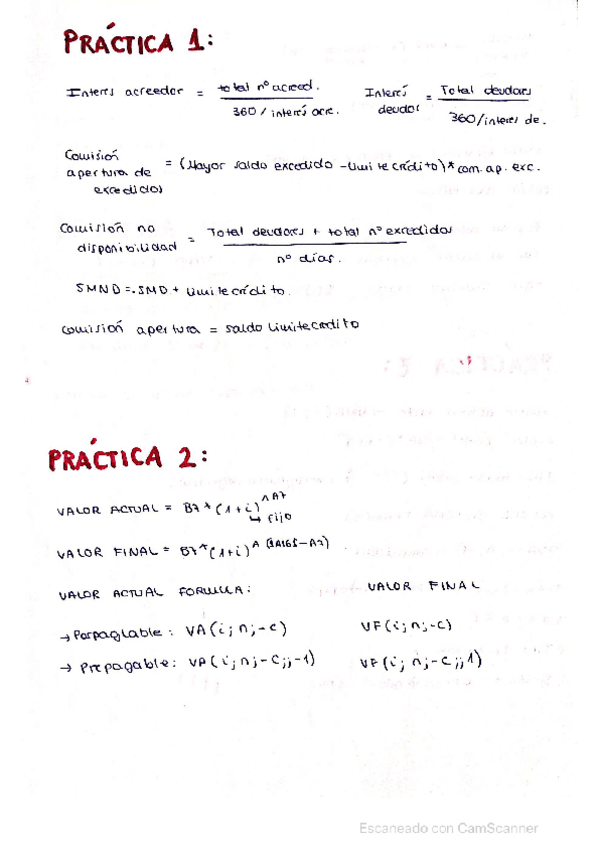 PRÁCTICA 1:
Interes acreedor = total nº acreed. / 360 / interés acre.
Interés deudor = Total deudores / 360/interes de.
Comisión apertura de excedidos = (Mayor saldo excedido - limite crédito) * com. ap. exc.
Comisión no disponibilidad = Total deudores + total nº excedidos / nº días.
SMND = SMD + limite crédito.
comisión apertura = saldo limite credito
PRÁCTICA 2:
VALOR ACTUAL = B7 * (1+i) ^ A7
↳ fijo
VALOR FINAL = B7 * (1+i) ^ ($A165-A7)
VALOR ACTUAL FORMULA: VALOR FINAL
→ Pospagable: VA(i; n; -c) VF(i; n; -c)
→ Prepagable: VA(i; n; -c;; 1) VF(i; n; -c;; 1)
Escaneado con CamScanner